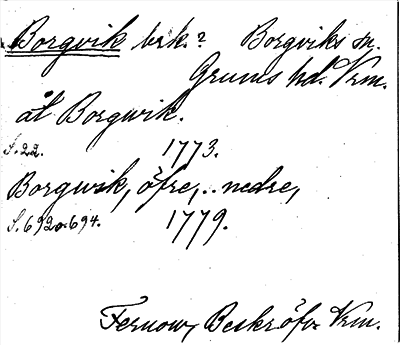 Borgvik brk.? Borgviks sn.
Grums hd. Vrm.
åt Borgwik.
S. 22. 1773.
Borgwik, öfre, .. nedre,
S. 692 o. 694. 1779.
Fernow, Beskröfn Vrm.